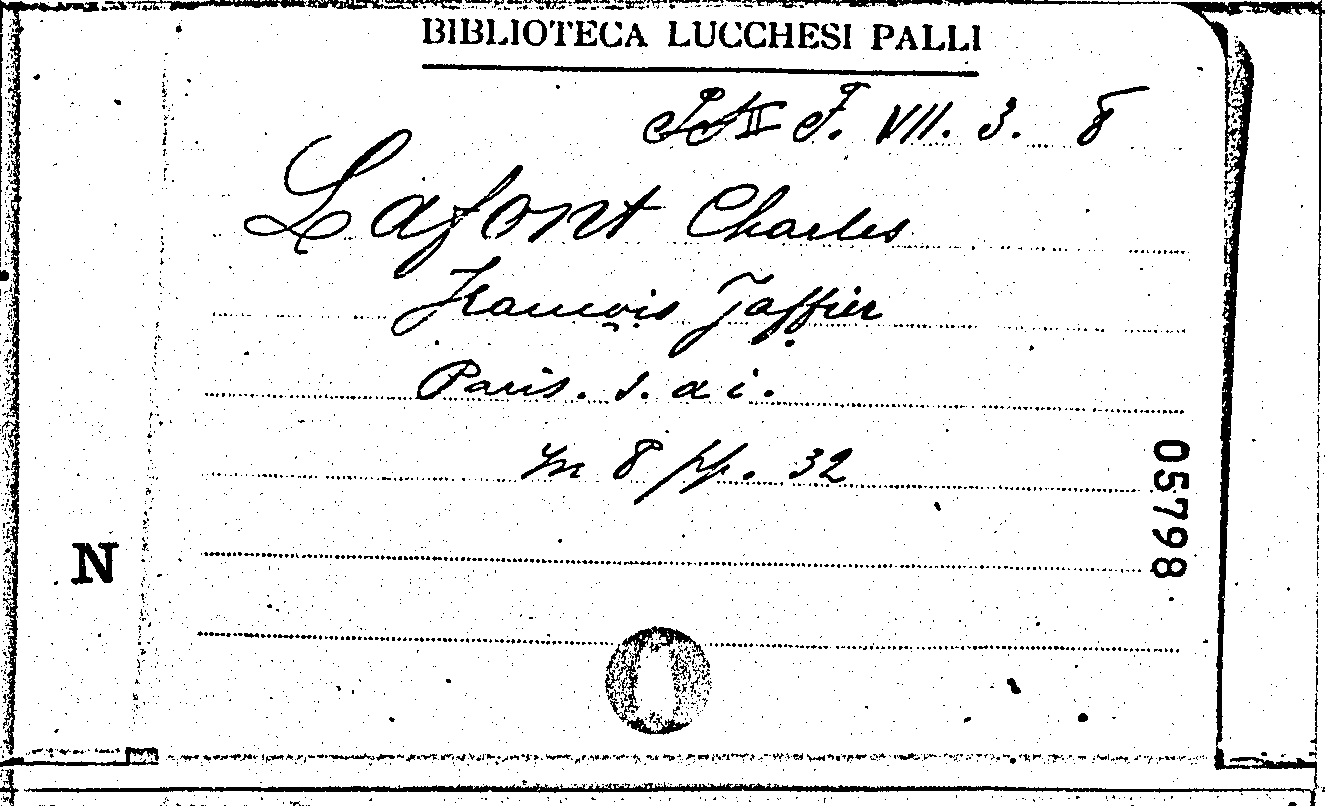 BIBLIOTECA LUCCHESI PALLI
F. VII. 3. 8
Lafont Charles
François Jaffier
Paris. s. a i.
in 8 pp. 32
05798
N